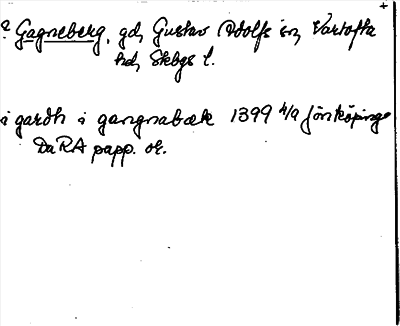 ? Gagneberg, gd, Gustav Adolfs sn, Vartofta
hd, Skbgs l.
i gardh i gangnabæk 1399 4/9 Jönköping
DaRA papp. or.